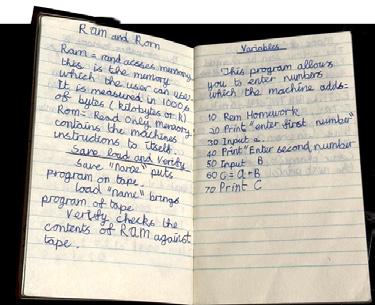 Ram and Rom
Ram = rand access memory
this is the memory
which the user can use.
It is measured in 1000s
of bytes (kilobytes or K)
Rom = Read Only memory
contains the machines
instructions to itself.
Save load and Verify
Save "name" puts
program on tape.
load "name" brings
program of tape
Verify checks the
contents of RAM against
tape.
Variables
This program allows
you to enter numbers
which the machine adds=
10 Rem Homework
20 Print "enter first number"
30 Input a
40 Print "Enter second number
50 Input B
60 C = a + B
70 Print C